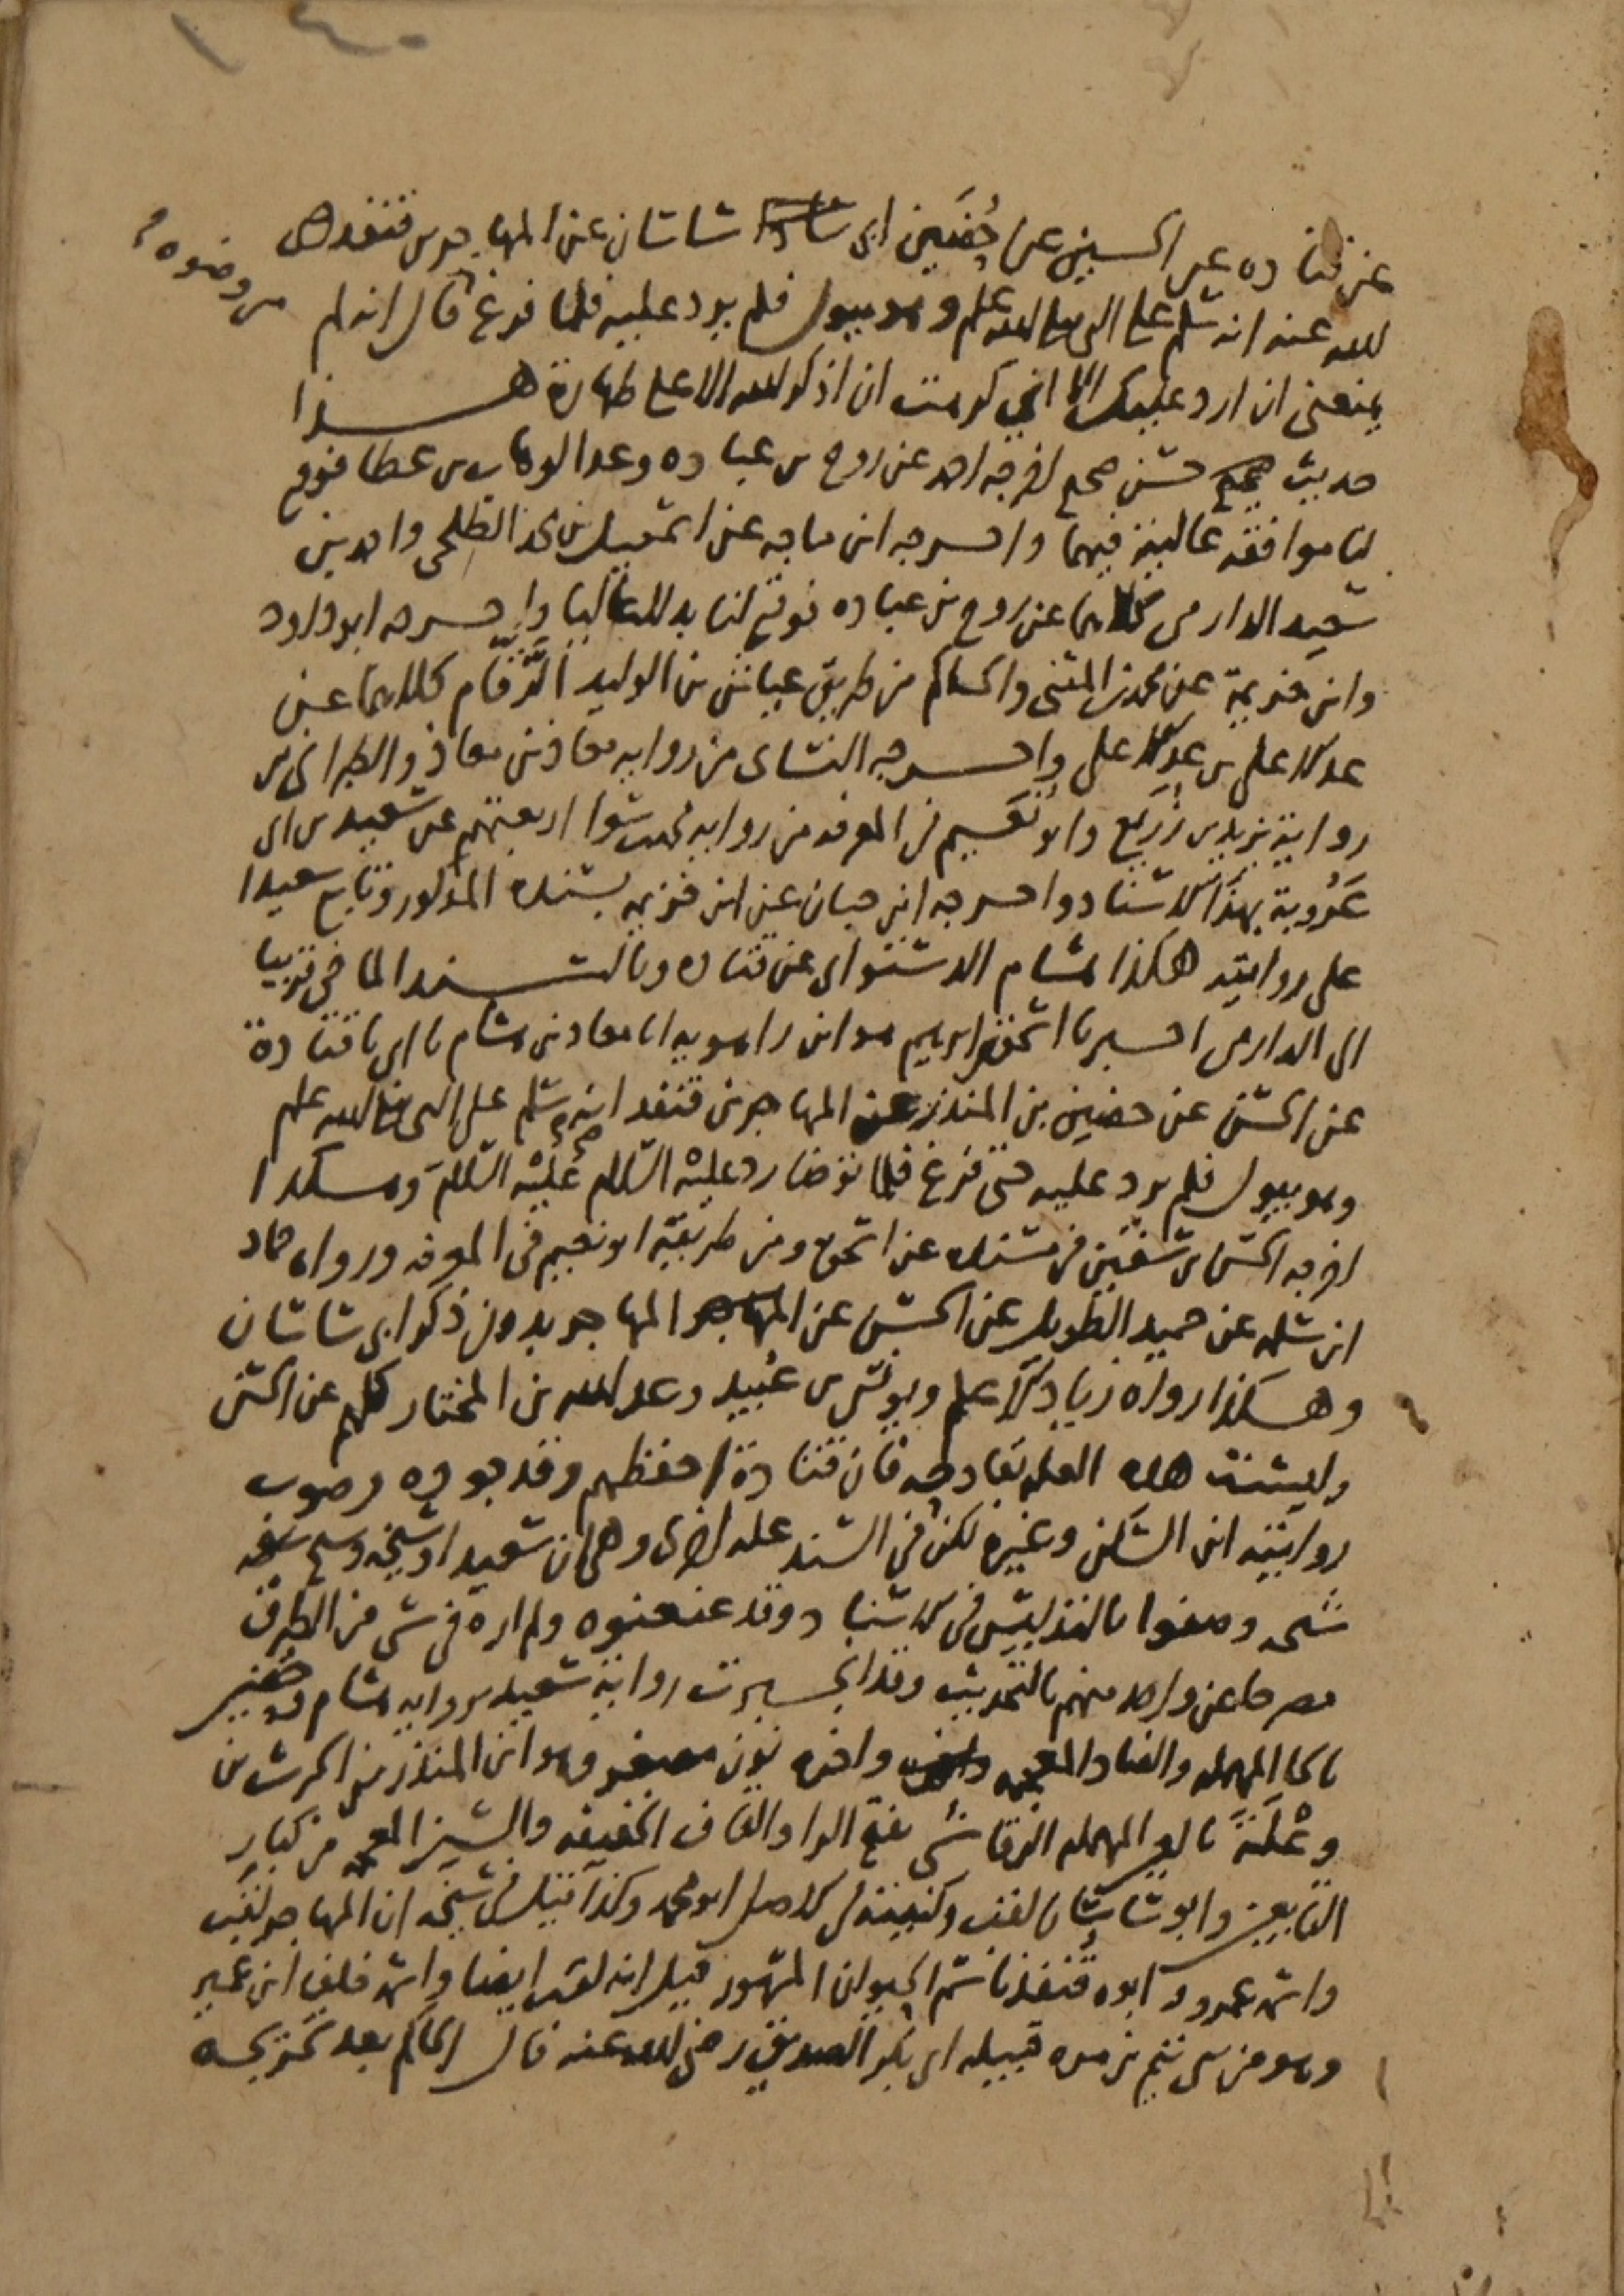 ١٤٠
عن قتادة عن الحسن عن حُضَين ابى ساسان عن المهاجر بن قنفد رضى
الله عنه انه سلم على النبى صلى الله عليه وسلم وهو يبول فلم يرد عليه فلما فرغ قال انه لم
من وضوه
يمنعنى ان ارد عليك الا انى كرهت ان اذكر الله الا على طهارة هذا
حديث حسن صحيح اخرجه احمد عن روح بن عبادة وعبد الوهاب بن عطا فوقع
لنا موافقة عالية فيهما واخرجه ابن ماجه عن اسمعيل بن محمد الطلحى واحمد بن
سعيد الدارمى كلاهما عن روح بن عبادة فوقع لنا بدلا عاليا واخرجه ابو داود
وابن خزيمة عن محمد بن المثنى والحاكم من طريق عياش بن الوليد الرَّقّام كلاهما عن
عبد الاعلى بن عبد الاعلى واخرجه النساى من رواية معاذ بن معاذ والطبرانى من
رواية يزيد بن زُرَيع وابو نعيم فى المعرفة من رواية محمد بن سوا اربعتهم عن سعيد بن ابى
عَرُوبة بهذا الاسناد واخرجه ابن حبان عن ابن خزيمه بسنده المذكور وتابع سعيدا
على روايته هكذا هشام الدستوائى عن قتاده وبالسند الماضى قريبا
الى الدارمى اخبرنا اسحق بن ابرهيم هو ابن راهويه انا معاذ بن هشام نا ابى نا قتادة
عن الحسن عن حضين بن المنذر عن المهاجر بن قنفد انه سلم على النبى صلى الله عليه وسلم
وهو يبول فلم يرد عليه حتى فرغ فلما توضا رد عليْه السّلام وهكذا
اخرجه الحسن بن سفين فى مسنده عن اسحق ومن طريقه ابو نعيم فى المعرفه ورواه حماد
ابن سلمه عن حميد الطويل عن الحسن عن المهاجر بدون ذكر ابى ساسان
وهكذا رواه زياد الاعلم ويونس بن عُبيد وعبد الله بن المختار كلهم عن الحسن
وليست هذه العله بقادحه فان قتادة احفظهم وقد جوده وصوب
روايته ابن السَّكن وغيره لكن فى السند عله اخرى وهى ان سعيدا وشيخه وشيخ شيخه
وصفوا بالتدليس فى الاسناد وقد عنعنوه ولم اره فى شى من الطرق
مصرحا عن واحد منهم بالتحديث وقد انجبرت رواية سعيد برواية هشام وحُضين
بالحا المهمله والضاد المعجمه واخره نون مصغر وهو ابن المنذر بن الحرث بن
وعْلَةَ بالعين المهمله الرقاشى بفتح الرا والقاف الخفيفه والشين المعجمه من كبار
التابعين وابو ساسان لقب وكنيته فى الاصل ابو محمد وكذا قيل فى شيخه ان المهاجر لقب
واسمه عمرو وابوه قنفد باسم الحيوان المشهور قيل انه لقب ايضا واسمه خلف ابن عمير
وهو من بنى تيم بن مره قبيله ابى بكر الصديق رضى الله عنه قال الحاكم بعد تخريجه